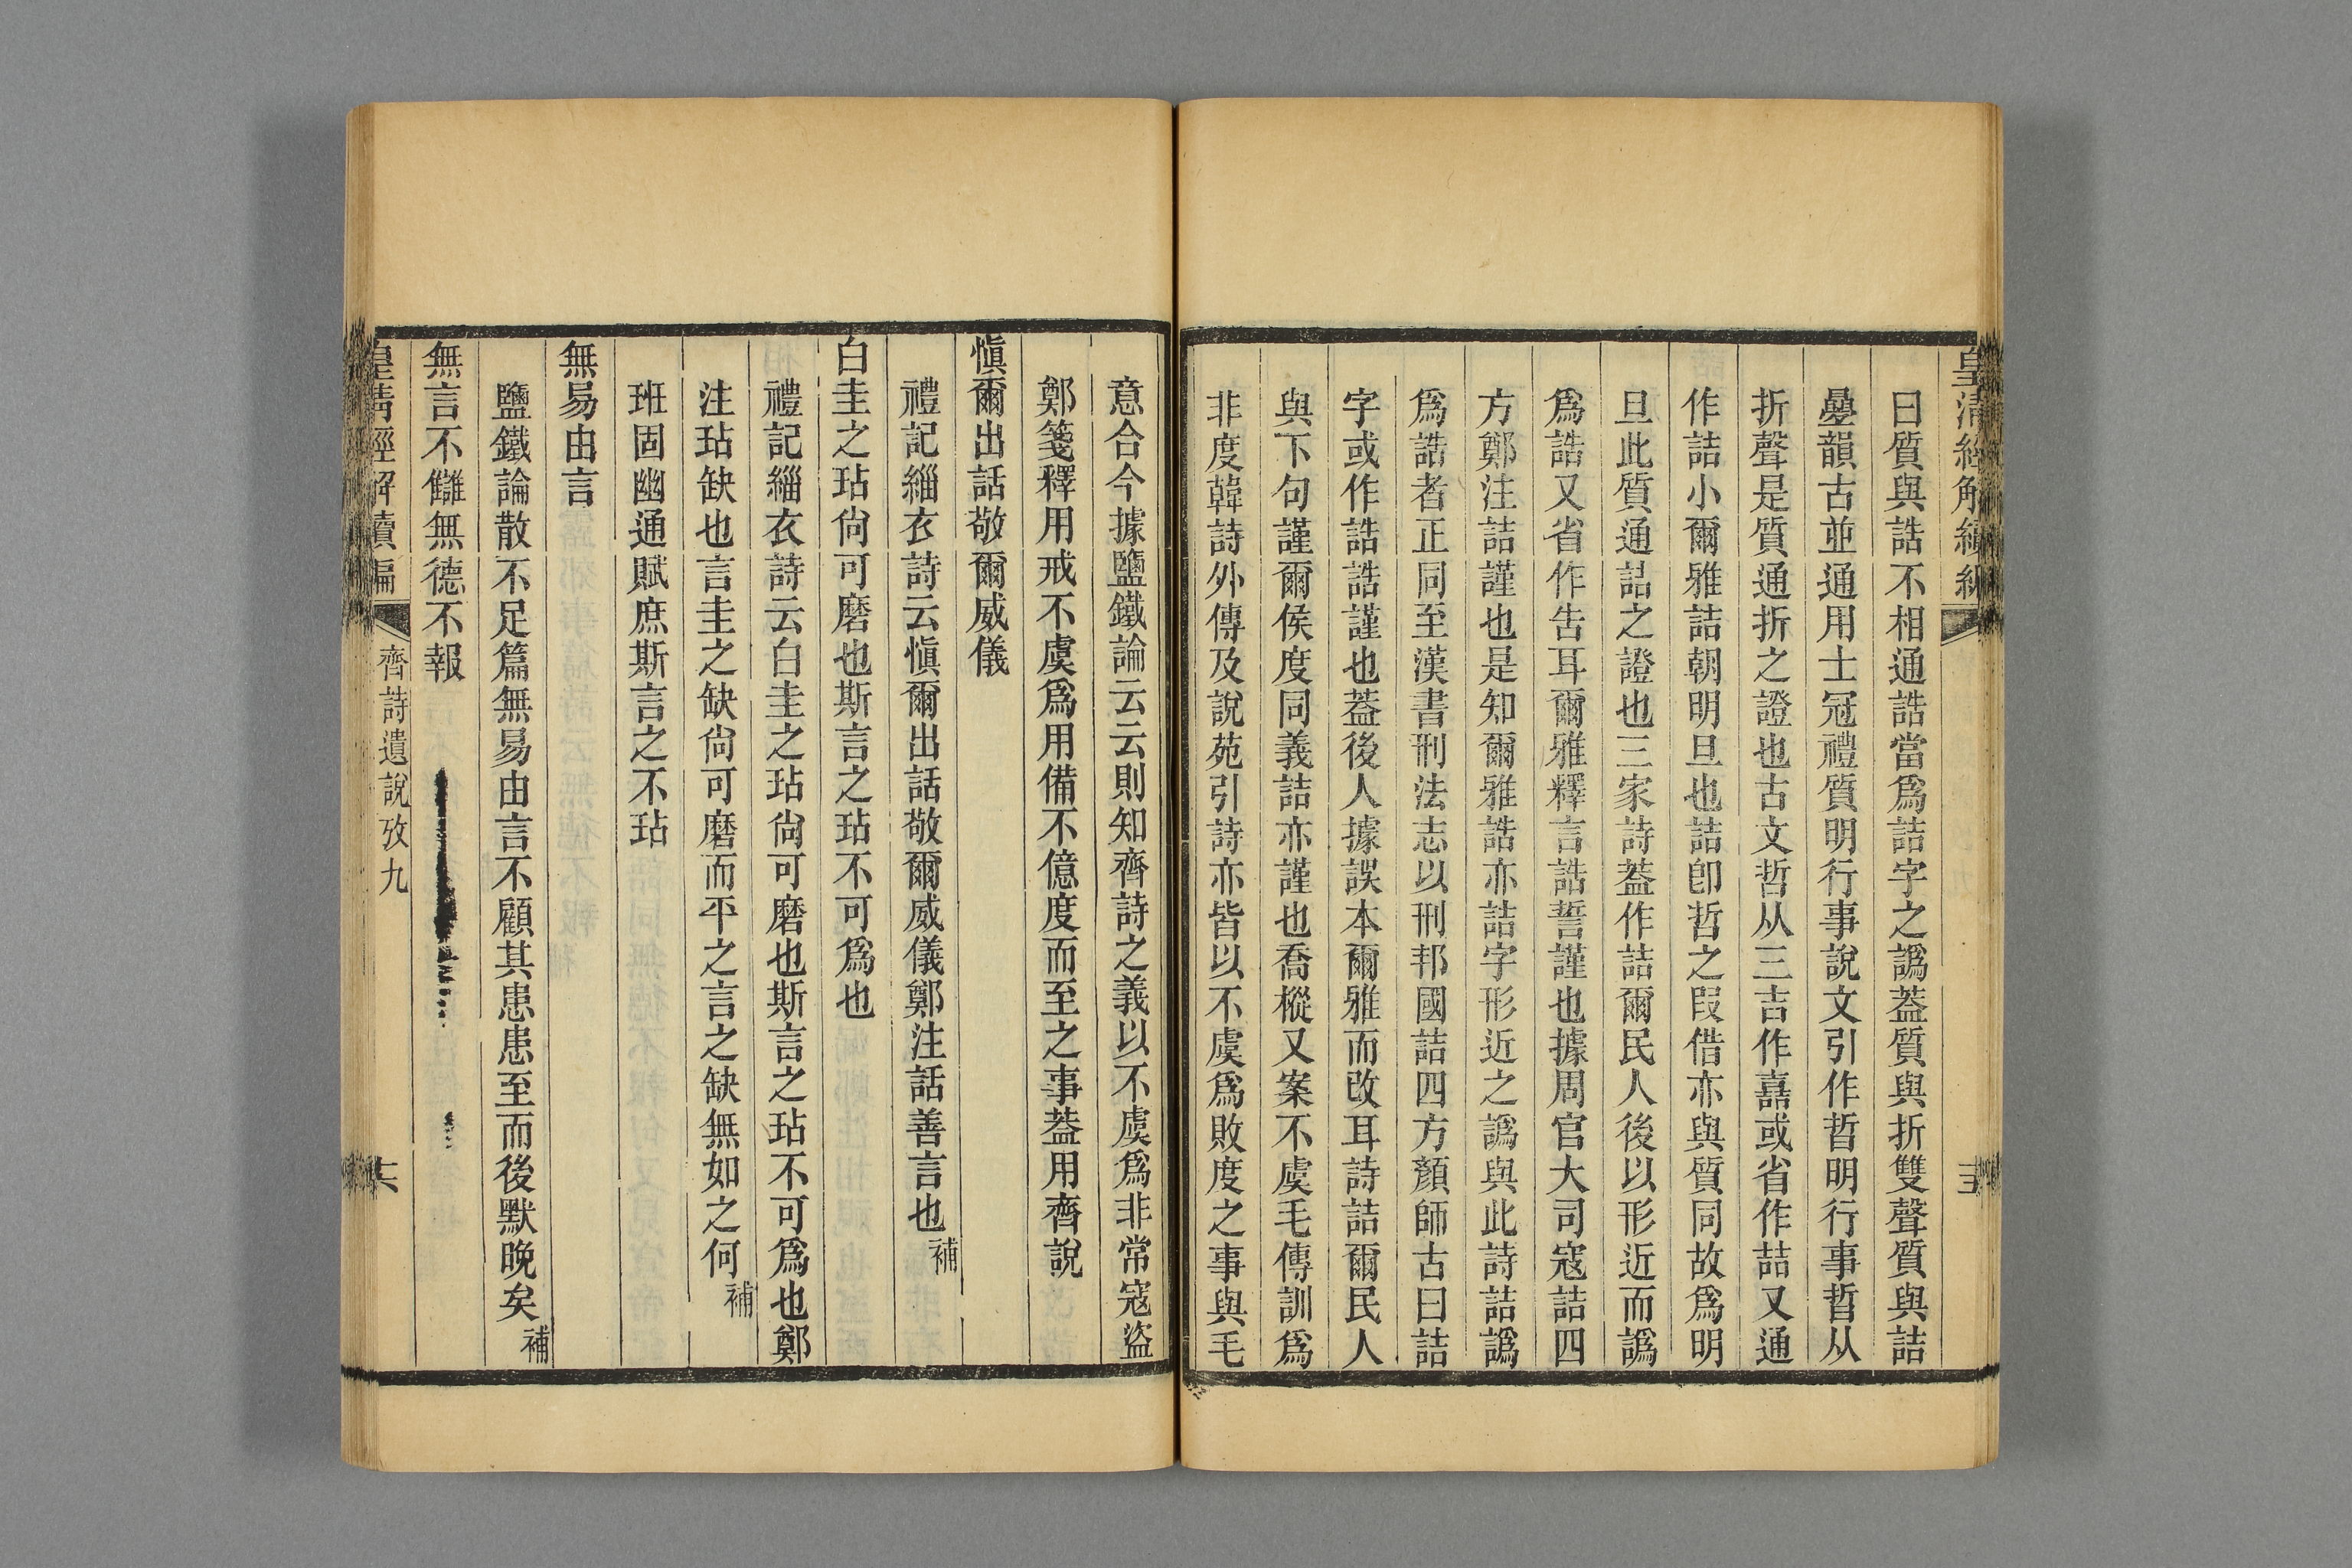 皇清經解續編
曰質與誥不相通誥當爲詰字之譌蓋質與折雙聲質與詰
曡韻古並通用士冠禮質明行事說文引作晢明行事晢从
折聲是質通折之證也古文哲从三吉作嚞或省作喆又通
作詰小爾雅詰朝明旦也詰卽晢之叚借亦與質同故爲明
旦此質通詰之證也三家詩蓋作詰爾民人後以形近而譌
爲誥又省作告耳爾雅釋言誥誓謹也據周官大司寇詰四
方鄭注詰謹也是知爾雅誥亦詰字形近之譌與此詩詰譌
爲誥者正同至漢書刑法志以刑邦國詰四方顏師古曰詰
字或作誥誥謹也蓋後人據誤本爾雅而改耳詩詰爾民人
與下句謹爾侯度同義詰亦謹也喬樅又案不虞毛傳訓爲
非度韓詩外傳及說苑引詩亦皆以不虞爲敗度之事與毛
意合今據鹽鐵論云云則知齊詩之義以不虞爲非常寇盜
鄭箋釋用戒不虞爲用備不億度而至之事蓋用齊說
愼爾出話敬爾威儀
禮記緇衣詩云愼爾出話敬爾威儀鄭注話善言也補
白圭之玷尙可磨也斯言之玷不可爲也
禮記緇衣詩云白圭之玷尙可磨也斯言之玷不可爲也鄭
注玷缺也言圭之缺尙可磨而平之言之缺無如之何補
班固幽通賦庶斯言之不玷
無易由言
鹽鐵論散不足篇無易由言不顧其患患至而後默晚矣補
無言不讎無德不報
皇清經解續編
齊詩遺說攷九